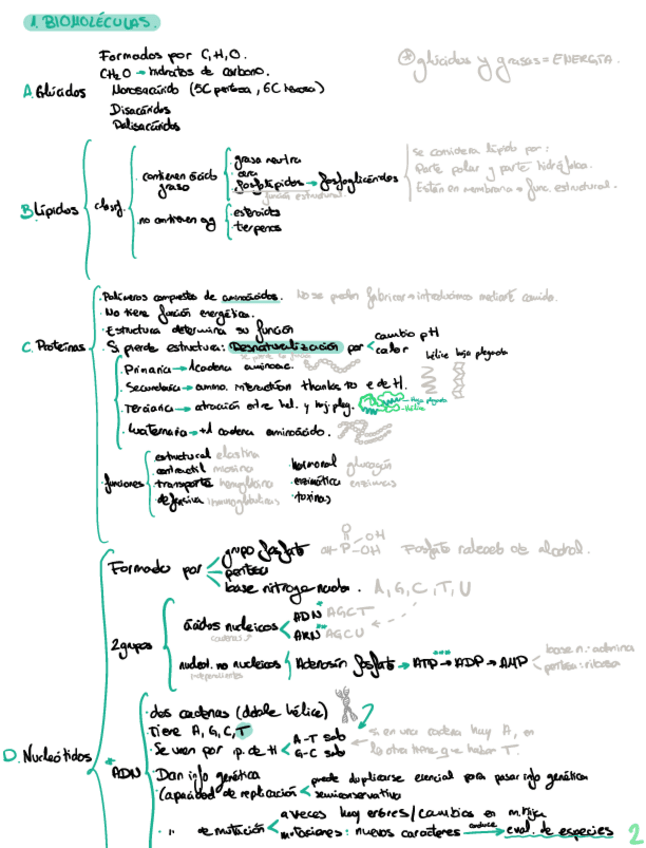 1. BIOMOLÉCULAS.
Formados por C, H, O.
CH₂O → hidratos de carbono.
A. Glúcidos
Monosacárido (5C pentosa, 6C hexosa)
Disacáridos
Polisacáridos
* glúcidos y grasas = ENERGÍA.
B. Lípidos
clasif.
contienen ácido graso
grasa neutra
cera
fosfolípidos → fosfoglicéridos
función estructural
no contienen ag
esteroides
terpenos
Se considera lípido por:
Parte polar y parte hidrófoba.
Están en membrana → func. estructural.
C. Proteínas
· Polímeros compuestos de aminoácidos. No se pueden fabricar → introducimos mediante comida.
· No tiene función energética.
· Estructura determina su función
· Si pierde estructura: Desnaturalización por
cambio pH
calor
se pierde la función
Primaria → 1 cadena aminoac.
Secundaria → amino. interaction thanks to e de H.
hélice hoja plegada
Terciaria → atracción entre hel. y hoj. pleg.
hoja plegada
hélice
Cuaternaria → +1 cadena aminoácido.
· funciones
estructural elastina
contractil miosina
transporte hemoglobina
defensiva inmunoglobulinas
· hormonal glucagón
· enzimática enzimas
· toxinas
D. Nucleótidos
Formado por
grupo fosfato
pentosa
base nitrogenada. A, G, C, T, U
O
OH
P-OH
OH
2 grupos
ácidos nucleicos
cadenas
ADN* AGCT
ARN* AGCU
nucleot. no nucleicos
independientes
Adenosín fosfato → ATP → ADP → AMP
***
base n.: adenina
pentosa: ribosa
* ADN
· dos cadenas (doble hélice)
· Tiene A, G, C, T
· Se unen por p. de H
A-T solo
G-C solo
si en una cadena hay A, en
la otra tiene que haber T.
· Dan info genética
· Capacidad de replicación
puede duplicarse esencial para pasar info genética
semiconservativa
· " de mutación
a veces hay errores/cambios en m. hija
mutaciones: nuevos caracteres
conduce
→ evol. de especies
2